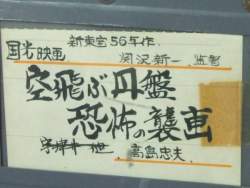 新東宝56年作
国光映画 関沢新一 監督
空飛ぶ円盤
恐怖の襲画
高島忠夫